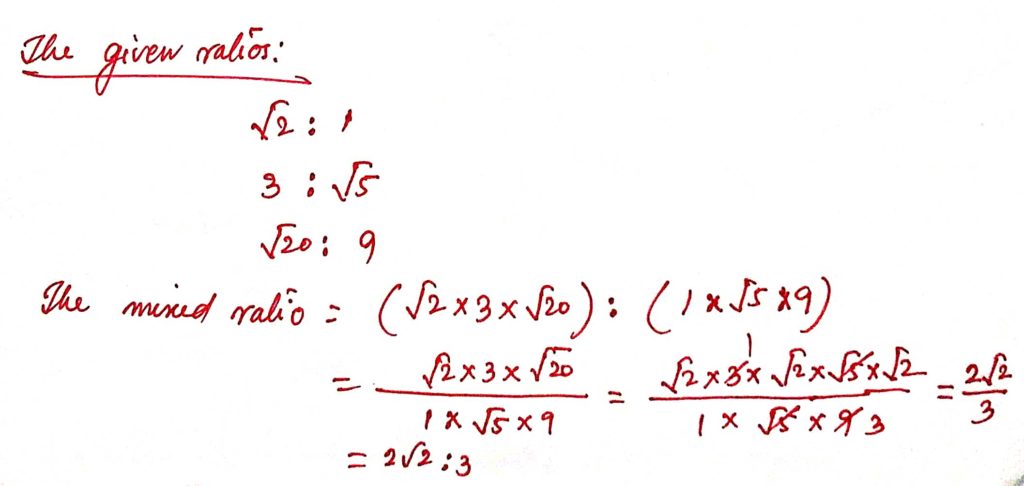 The given ratios:
√2 : 1
3 : √5
√20 : 9
The mixed ratio = (√2 × 3 × √20) : (1 × √5 × 9)
= √2 × 3 × √20 / 1 × √5 × 9 = √2 × 3 × √2 × √5 × √2 / 1 × √5 × 9 3 = 2√2 / 3
= 2√2 : 3